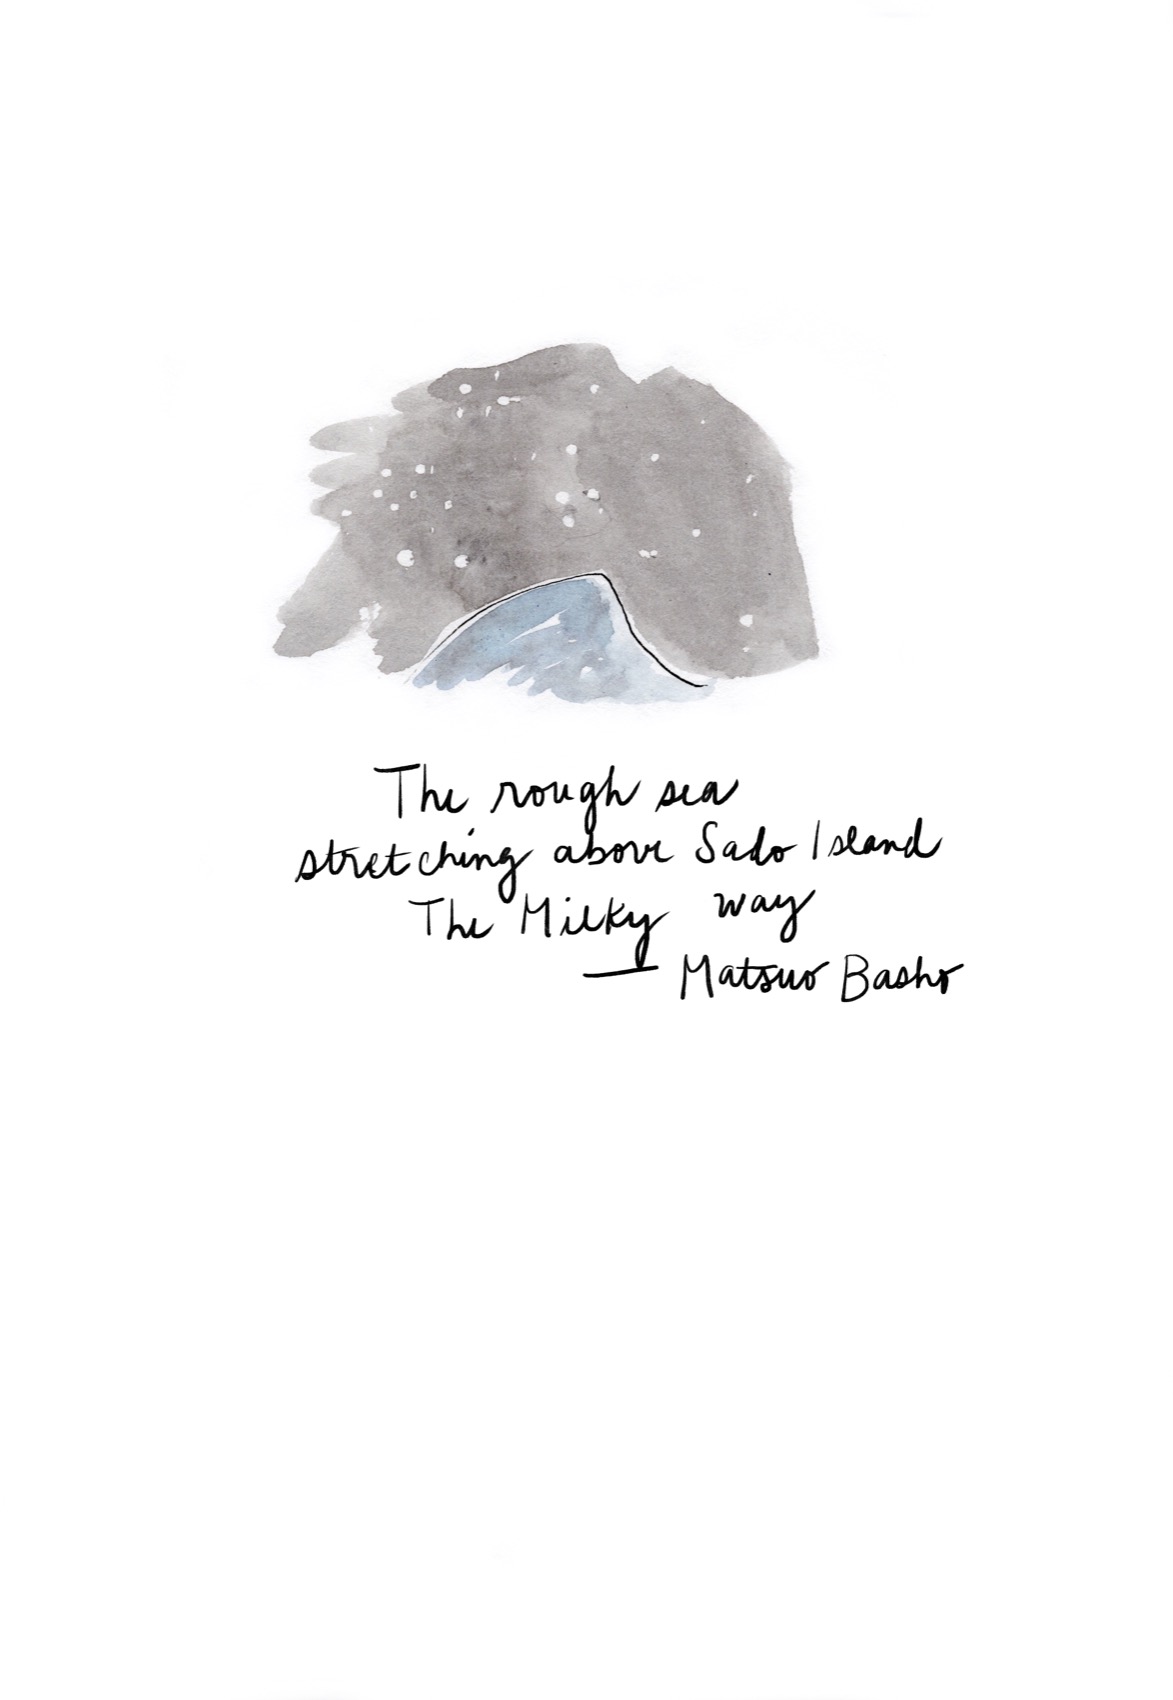 The rough sea
stretching above Sado Island
The Milky way
— Matsuo Basho